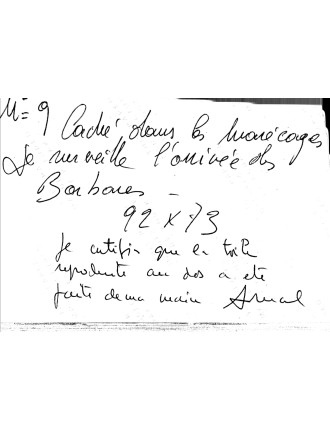 N= 9 Caché dans les marécages
Je surveille l'arrivée des
Barbares -
92 x 73
Je certifie que la toile
reproduite au dos a été
faite de ma main Arnal